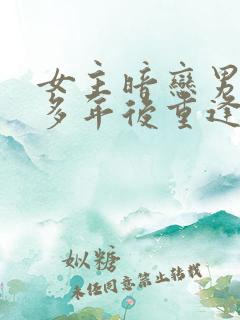 女主暗戀男
多年後重逢
似糖
未经同意禁止转载